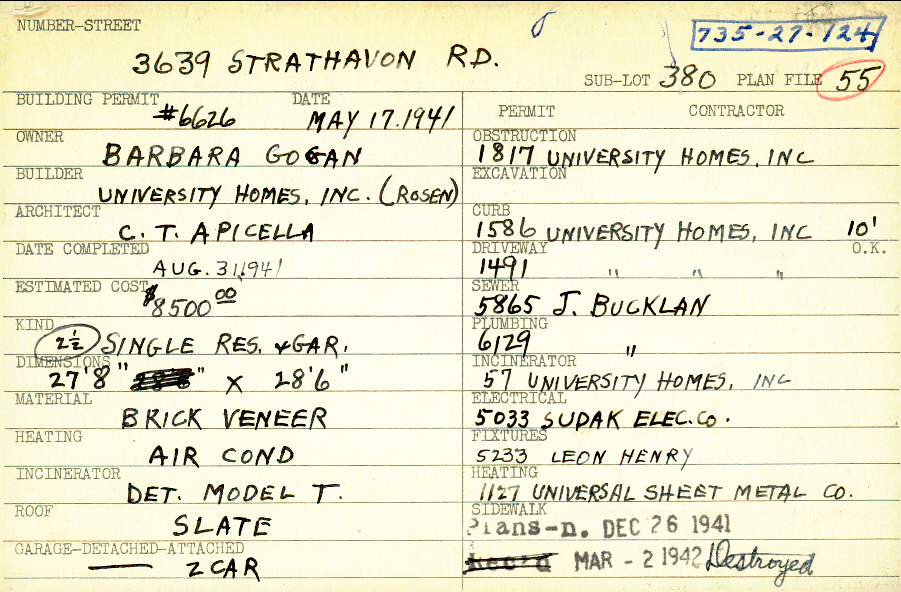 NUMBER-STREET
735-27-124
3639 STRATHAVON RD.
SUB-LOT 380 PLAN FILE 55
BUILDING PERMIT #6626 DATE MAY 17.1941
OWNER BARBARA GOGAN
BUILDER UNIVERSITY HOMES, INC. (ROSEN)
ARCHITECT C. T. APICELLA
DATE COMPLETED AUG. 31, 1941
ESTIMATED COST $8500 00
KIND 2½ SINGLE RES. & GAR.
DIMENSIONS 27'8" " X 28'6"
MATERIAL BRICK VENEER
HEATING AIR COND
INCINERATOR DET. MODEL T.
ROOF SLATE
GARAGE-DETACHED-ATTACHED — 2 CAR
PERMIT CONTRACTOR
OBSTRUCTION 1817 UNIVERSITY HOMES, INC
EXCAVATION
CURB 1586 UNIVERSITY HOMES, INC 10'
O.K.
DRIVEWAY 1491 " " "
SEWER 5865 J. BUCKLAN
PLUMBING 6129 "
INCINERATOR 57 UNIVERSITY HOMES, INC
ELECTRICAL 5033 SUDAK ELEC. CO.
FIXTURES 5233 LEON HENRY
HEATING 1127 UNIVERSAL SHEET METAL CO.
SIDEWALK
Plans-n. DEC 26 1941
Rec'd MAR - 2 1942 Destroyed